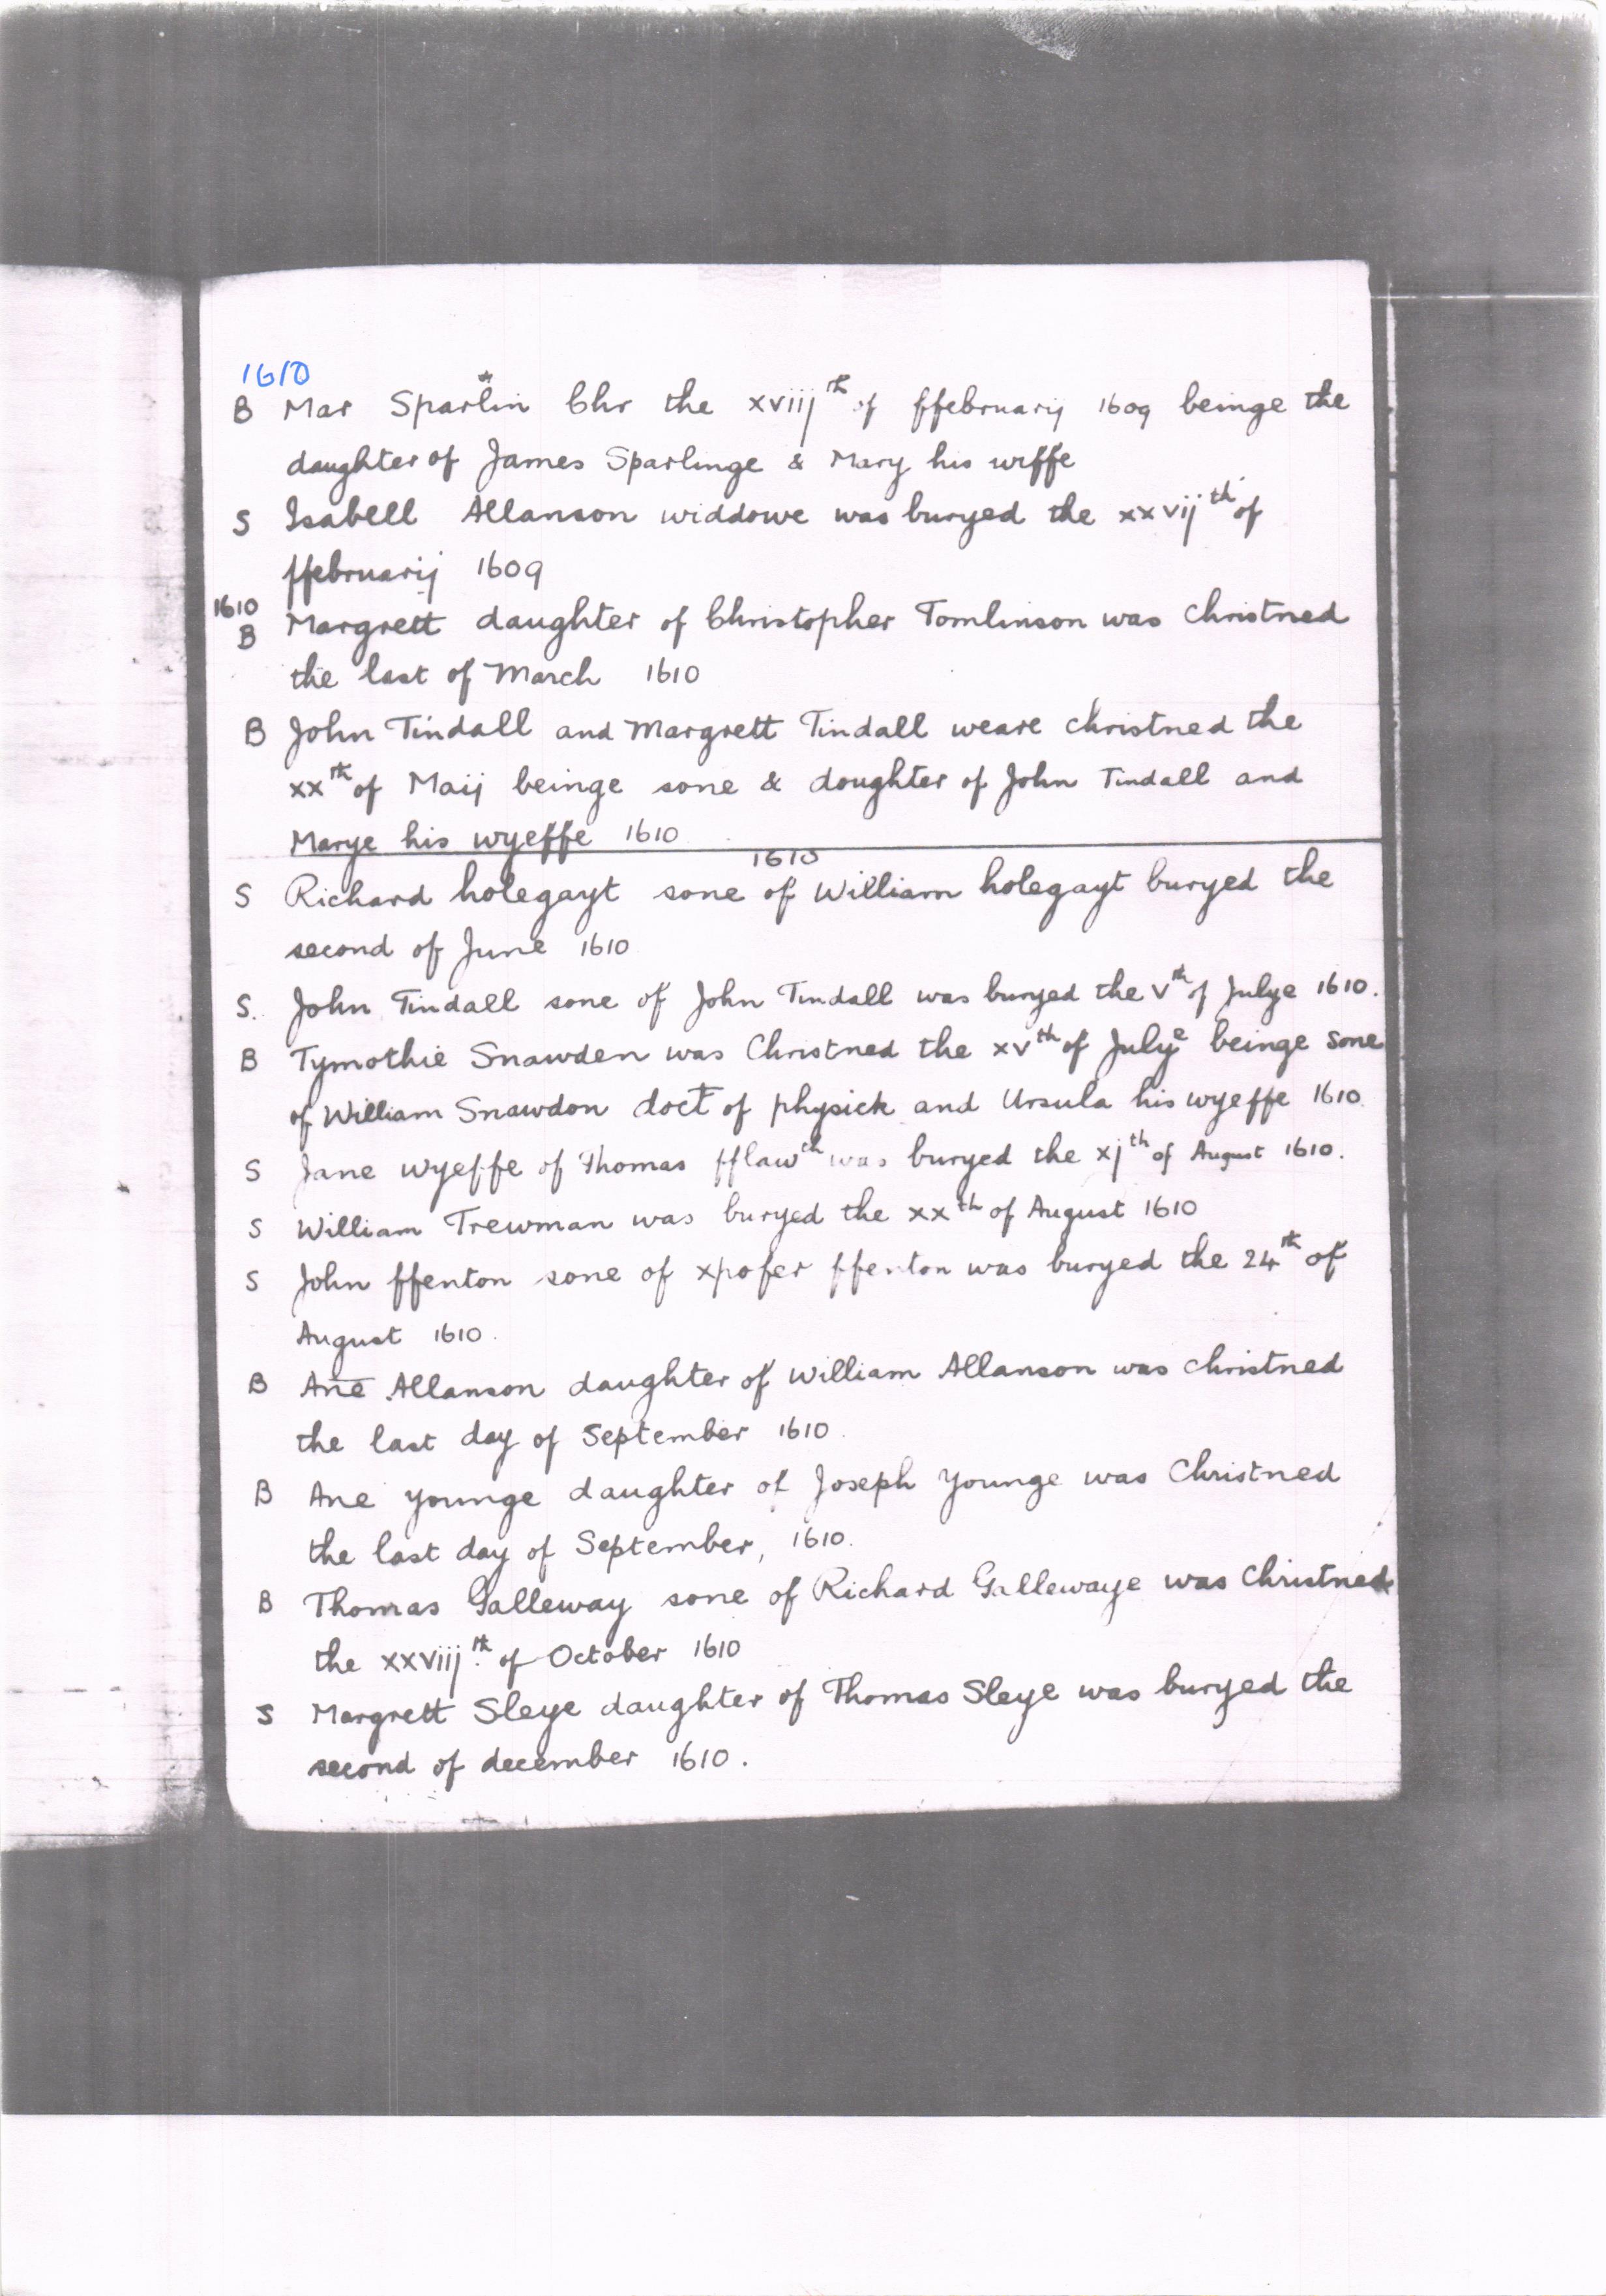 1610
B Mar Sparlin Chr the xviijth of ffebruarij 1609 beinge the
daughter of James Sparlinge & Mary his wiffe
S Isabell Allanson widdowe was buryed the xxvijth of
ffebruarij 1609
1610
B Margrett daughter of Christopher Tomlinson was Christned
the last of March 1610
B John Tindall and Margrett Tindall weare christned the
xxth of Maij beinge sone & doughter of John Tindall and
Marye his wyeffe 1610
1610
S Richard holegayt sone of William holegayt buryed the
second of June 1610
S. John Tindall sone of John Tindall was buryed the vth of Julye 1610.
B Tymothie Snawden was Christned the xvth of Julye beinge sone
of William Snawdon doct of physick and Ursula his wyeffe 1610
S Jane wyeffe of Thomas fflawth was buryed the xjth of August 1610.
S William Trewman was buryed the xxth of August 1610
S John ffenton sone of xpofer ffenton was buryed the 24th of
August 1610.
B Ane Allanson daughter of William Allanson was christned
the last day of September 1610.
B Ane Younge daughter of Joseph Younge was Christned
the last day of September, 1610.
B Thomas Galleway sone of Richard Gallewaye was Christned
the xxviijth of October 1610
S Margrett Sleye daughter of Thomas Sleye was buryed the
second of december 1610.